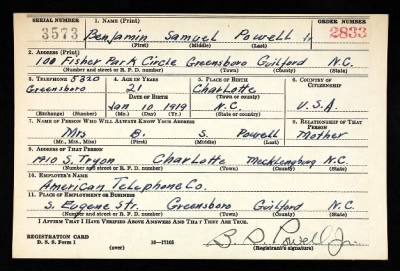 SERIAL NUMBER 1. NAME (Print) ORDER NUMBER
3573 Benjamin Samuel Powell Jr. 2833
(First) (Middle) (Last)
2. ADDRESS (Print)
100 Fisher Park Circle Greensboro Guilford N.C.
(Number and street or R. F. D. number) (Town) (County) (State)
3. TELEPHONE 5320 4. AGE IN YEARS 5. PLACE OF BIRTH 6. COUNTRY OF CITIZENSHIP
Greensboro 21 Charlotte
DATE OF BIRTH (Town or county)
Jan 10 1919 N.C. U.S.A.
(Exchange) (Number) (Mo.) (Day) (Yr.) (State or country)
7. NAME OF PERSON WHO WILL ALWAYS KNOW YOUR ADDRESS 8. RELATIONSHIP OF THAT PERSON
Mrs B. S. Powell Mother
(Mr., Mrs., Miss) (First) (Middle) (Last)
9. ADDRESS OF THAT PERSON
1910 S. Tryon Charlotte Mecklenburg N.C.
(Number and street or R. F. D. number) (Town) (County) (State)
10. EMPLOYER'S NAME
American Telephone Co.
11. PLACE OF EMPLOYMENT OR BUSINESS
S. Eugene Str. Greensboro Guilford N.C.
(Number and street or R. F. D. number) (Town) (County) (State)
I AFFIRM THAT I HAVE VERIFIED ABOVE ANSWERS AND THAT THEY ARE TRUE.
REGISTRATION CARD
D. S. S. Form 1 (over) 16-17105 Powell Jr.
(Registrant's signature)